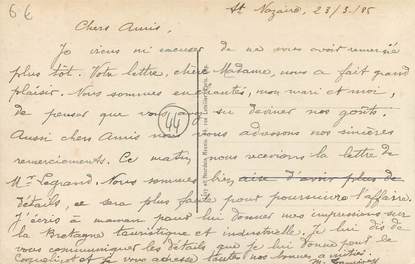 66
St Nazaire, 23/3/35
Chers Amis,
Je viens m'excuser de ne vous avoir remercié
plus tôt. Votre lettre, chère Madame, nous a fait grand
plaisir. Nous sommes enchantés, mon mari et moi,
de penser que vous su deviner nos goûts.
Aussi chers Amis nous vous adressons nos sincères
44
remerciements. Ce matin nous recevions la lettre de
Mr Legrand. Nous sommes bien aise d'avoir plus de
détails, ce sera plus facile pour poursuivre l'affaire.
J'écris à maman pour lui donner mes impressions sur
la Bretagne touristique et industrielle. Je lui dis de
vous communiquer les détails que je lui donne pour le
et je vous adresse toutes nos bonnes amitiés